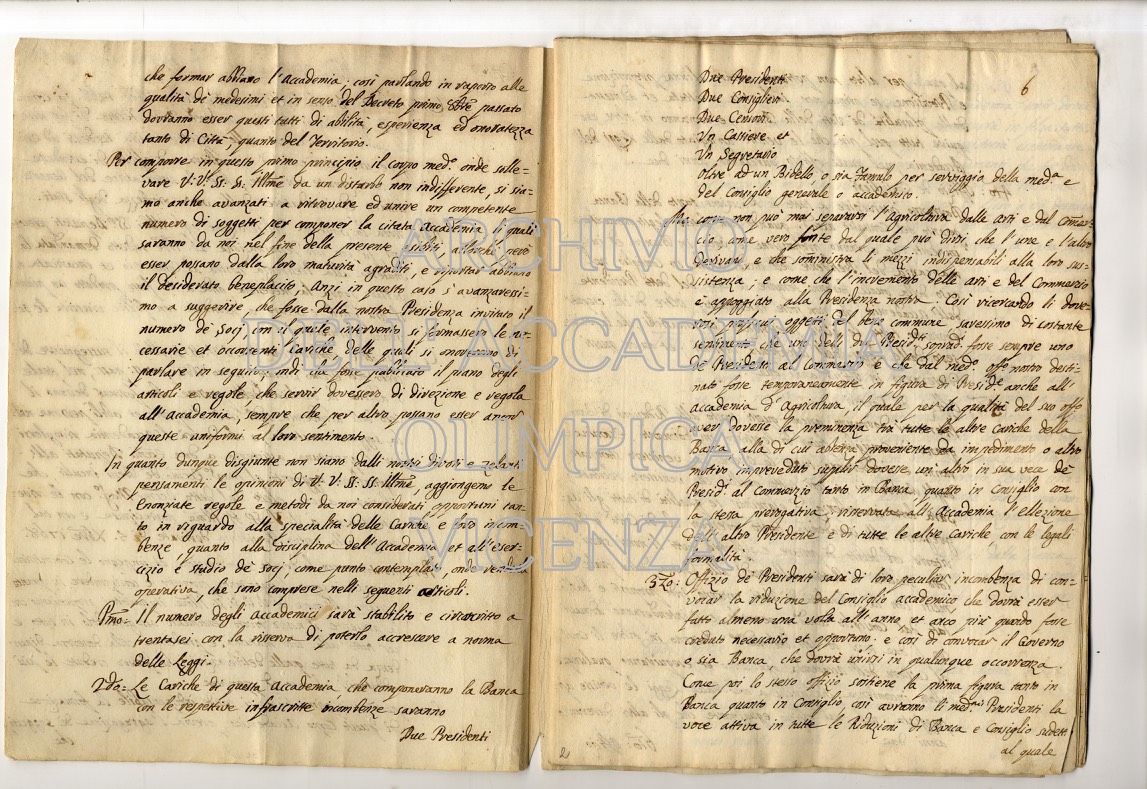 che formar abbiano l'Accademia. così parlando in raporto alle
qualità di medesimi et in senso del Decreto primo 8bre passato
dovranno esser questi tutti di abilità, esperienza ed onoratezza
tanto di Città, quanto del Territorio.
Per comporre in questo primo principio il corpo med.o onde solle=
vare V:V: SS: SS: Illme da un disturbo non indifferente, si sia=
mo anche avanzati a ritrovare ed unire un competente
numero di soggetti per componer la citata Accademia, i quali
saranno da noi nel fine della presente esibiti, allorchè però
esser possano dalla loro maturità agraditi, e riportar abbiano
il desiderato beneplacito; Anzi in questo caso s'avanzaressi=
mo a suggerire, che fosse dalla nostra Presidenza invitato il
numero de Socj con il quale intervento si formassero le ne=
cessarie et occorrenti Cariche, delle quali si onoreremo di
parlare in seguito, indi che fosse publicato il piano degli
articoli e regole, che servir dovessero di direzione e regola
all'Accademia, sempre che per altro possano esser ancor
queste uniformi al loro sentimento.
In quanto dunque disgiunte non siano dalli nostri divoti e zelanti
pensamenti le opinioni di V: V: SS: SS: Illme, aggiongemo le
Enonziate regole e metodi da noi considerati opportuni tan=
to in riguardo alla specialità delle Cariche e loro incom=
benze, quanto alla disciplina dell'Accademia et all'eser=
cizio e studio de Socj, come punto contemplato, onde renderla
operativa, che sono comprese nelli seguenti articoli.
Pmo= Il numero degli Accademici sarà stabilito e circoscritto a
trentasei con la riserva di poterlo accrescere a norma
delle Leggi.
2do= Le Cariche di questa Accademia, che componeranno la Banca
con le respettive infrascritte incombenze saranno
Due Presidenti
6
Due Presidenti
Due Consiglieri
Due Censori
Un Cassiere et
Un Segretario
oltre ad un Bidello o sia Famulo per servizzio della med.a e
del Consiglio generale o accademico.
Ma come non può mai separarsi l'Agricoltura dalle arti e dal Comer=
cio, come vero fonte dal quale può dirsi che l'une e l'altro
derivani, e che soministra li mezzi indispensabili alla loro sus=
sistenza; e come che l'incremento delle arti e del Commercio
è appoggiato alla Presidenza nostra. Così ricercando li dove=
rosi oggetti del bene commune saressimo di costante
sentimento che uno delli due Presid.ti sopradi fosse sempre uno
de Presidenti al Commerzio e che dal med.o offo nostro desti=
nato fosse temporaneamente in figura di Preside anche all'
accademia d'Agricoltura, il quale per la qualità del suo offo
aver dovesse la preminenza tra tutte le altre cariche della
Banca, alla di cui absenza proveniente da impedimento o altro
motivo impreveduto supplir dovesse un altro in sua vece de
Presid.ti al Commerzio tanto in Banca quanto in Consiglio con
la stessa prerogativa, riservata all'Accademia l'ellezione
dell'altro Presidente e di tutte le altre Cariche con le legali
formalità.
3zo: Offizio de Presidenti sarà di loro peculiar incombenza di con=
vocar la riduzione del Consiglio accademico, che dovrà esser
fatto almeno una volta all'anno, et anco più quando fosse
creduto necessario et opportuno; e così di convocar il Governo
o sia Banca, che dovrà unirsi in qualunque occorrenza.
Come poi lo stesso offizio sostiene la prima figura tanto in
Banca quanto in Consiglio, così avranno li med.mi Presidenti la
voce attiva in tutte le Riduzioni di Banca e Consiglio sudett
al quale
2
ARCHIVIO
DELL'ACCADEMIA
OLIMPICA
VICENZA